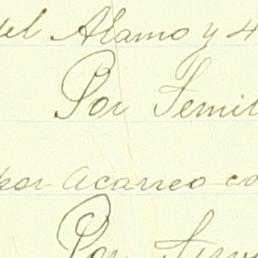 del Alamo y 4
Por Semil
por acarreo co
Por Serv